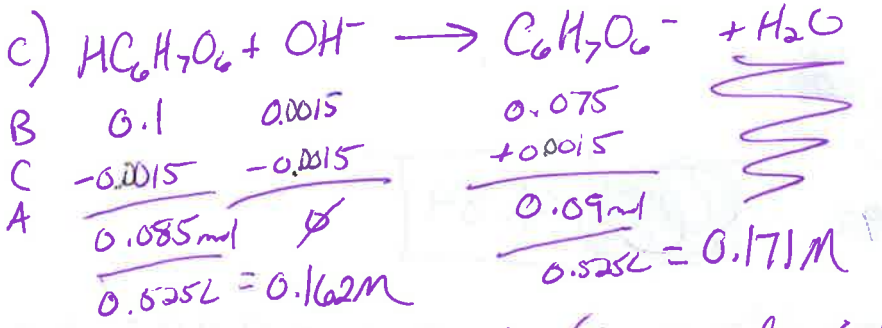 c) HC₆H₇O₆ + OH⁻ → C₆H₇O₆⁻ + H₂O
B 0.1 0.0015 0.075
C -0.0015 -0.0015 +0.0015
A 0.085 mol ∅ 0.09 mol
0.525L = 0.162M 0.525L = 0.171M